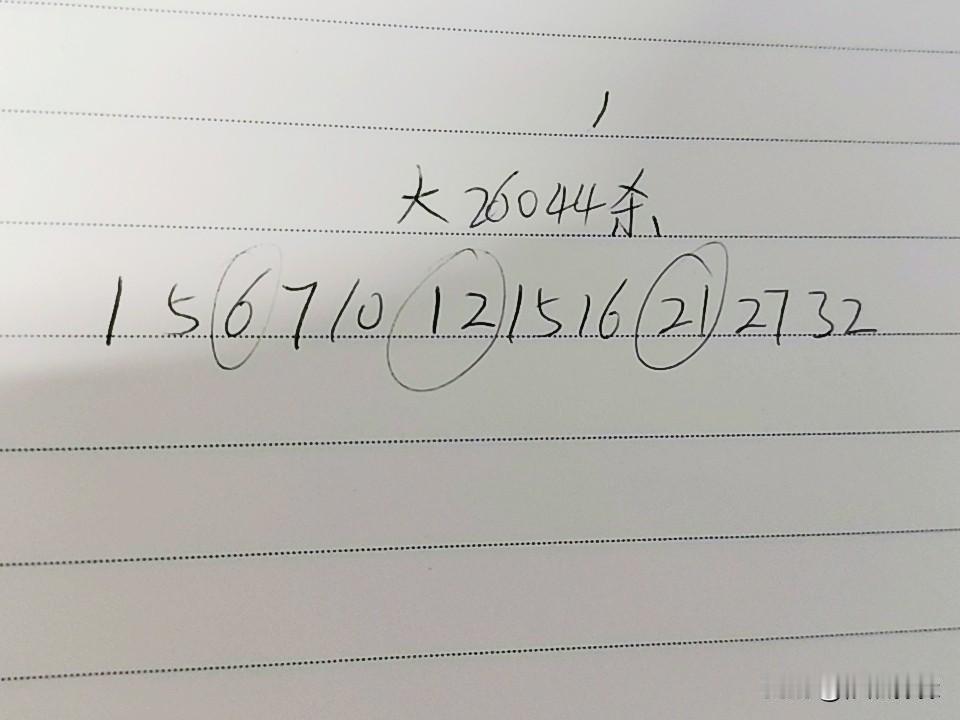 大26044杀
1 5 6 7 10 12 15 16 21 27 32